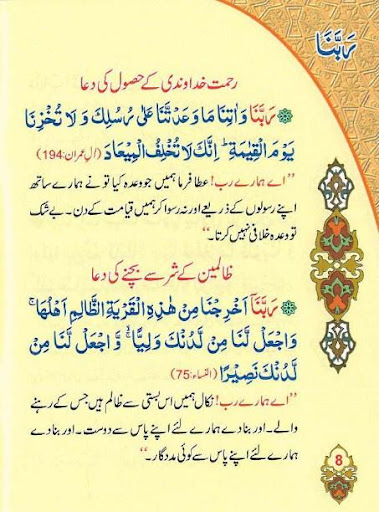 رَبَّنَا
رحمت خداوندی کے حصول کی دعا
رَبَّنَا وَاٰتِنَا مَا وَعَدْتَّنَا عَلٰى رُسُلِكَ وَ لَا تُخْزِنَا
يَوْمَ الْقِيٰمَةِ ؕ اِنَّكَ لَا تُخْلِفُ الْمِيْعَادَ (اٰلِ عمران:194)
”اے ہمارے رب! عطا فرما ہمیں جو وعدہ کیا تو نے ہمارے ساتھ
اپنے رسولوں کے ذریعے اور نہ رسوا کر ہمیں قیامت کے دن۔ بے شک
تو وعدہ خلافی نہیں کرتا۔“
ظالمین کے شر سے بچنے کی دعا
رَبَّنَاۤ اَخْرِجْنَا مِنْ هٰذِهِ الْقَرْيَةِ الظَّالِمِ اَهْلُهَا ۚ
وَاجْعَلْ لَّنَا مِنْ لَّدُنْكَ وَلِيًّا ۙ وَّ اجْعَلْ لَّنَا مِنْ
لَّدُنْكَ نَصِيْرًا (النساء:75)
”اے ہمارے رب! نکال ہمیں اس بستی سے ظالم ہیں جس کے رہنے
والے۔ اور بنا دے ہمارے لئے اپنے پاس سے دوست۔ اور بنا دے
ہمارے لئے اپنے پاس سے کوئی مددگار۔“
8